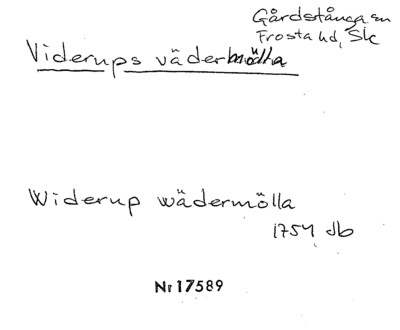 Gårdstånga sn
Frosta hd, Sk
Viderups vädermölla
Widerup wädermölla
1754 db
Nr 17589